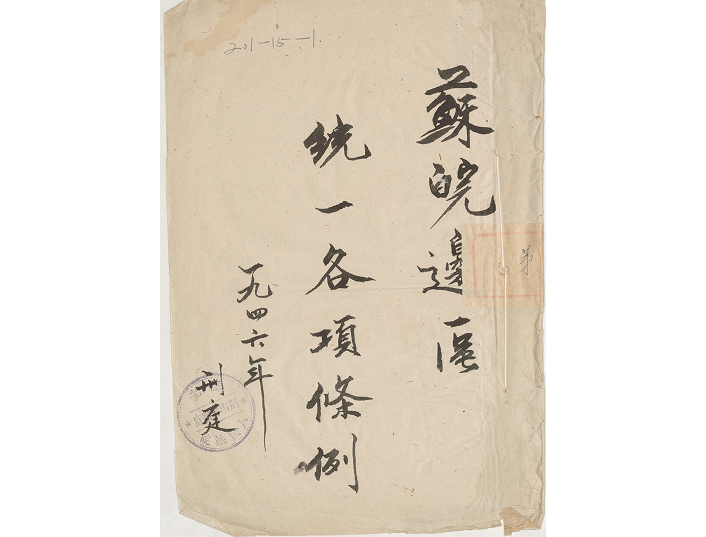 201-15-1
蘇皖邊區
統一各項條例
一九四六年
刑庭
第